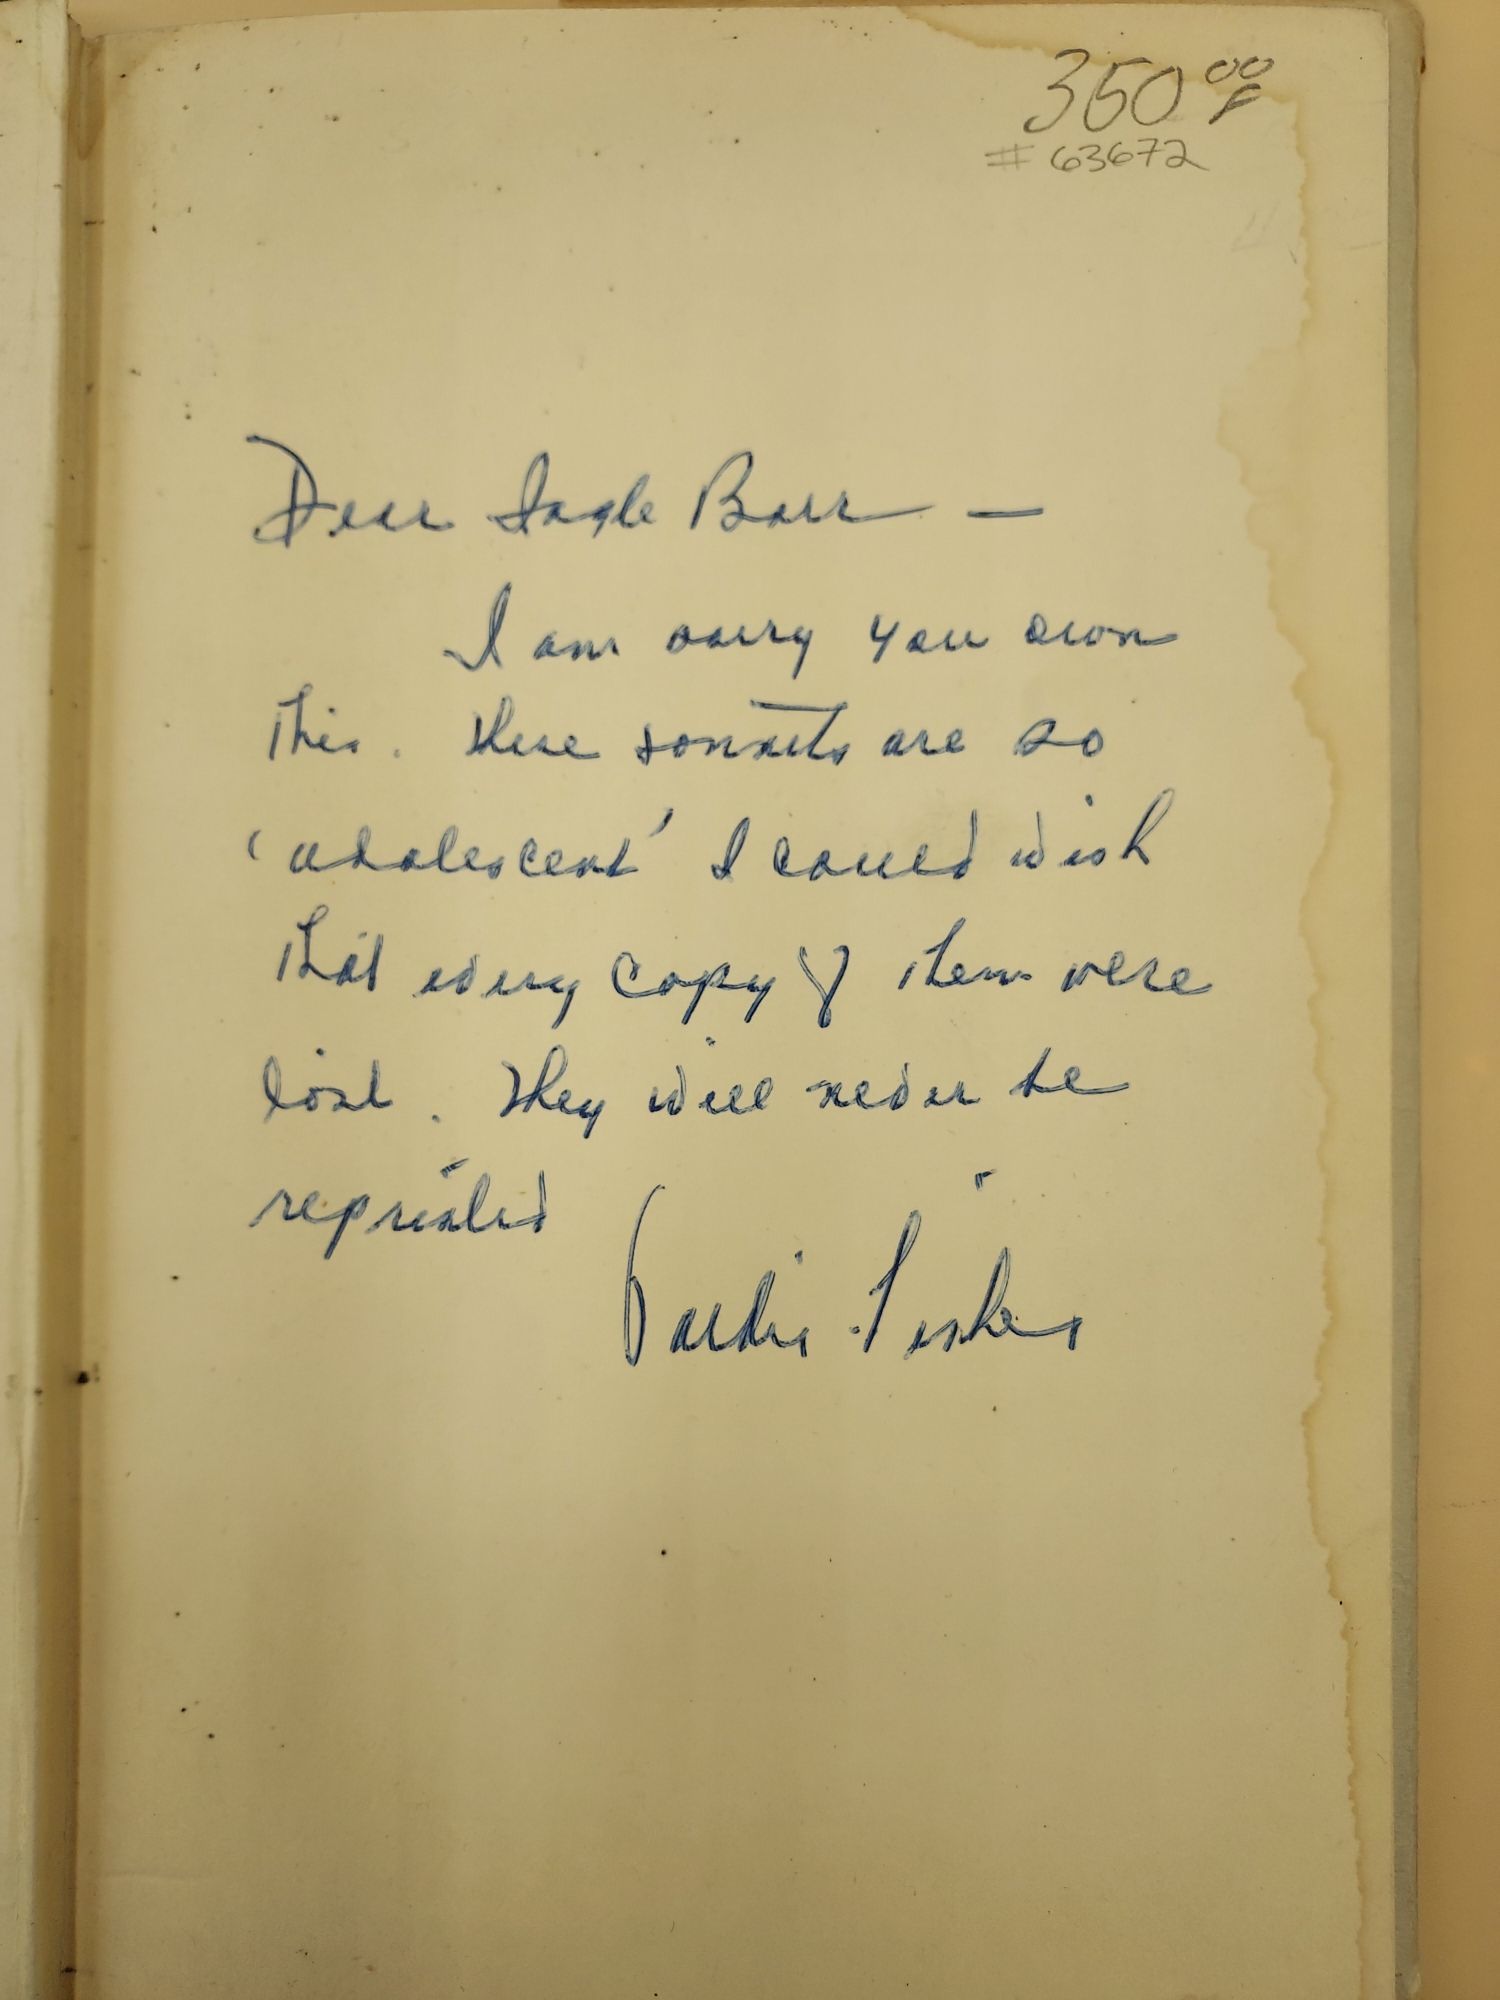 350 00
# 63672
Dear Ingle Barr —
I am sorry you own
this. These sonnets are so
'adolescent' I could wish
that every copy of them were
lost. They will never be
reprinted
Vardis Fisher